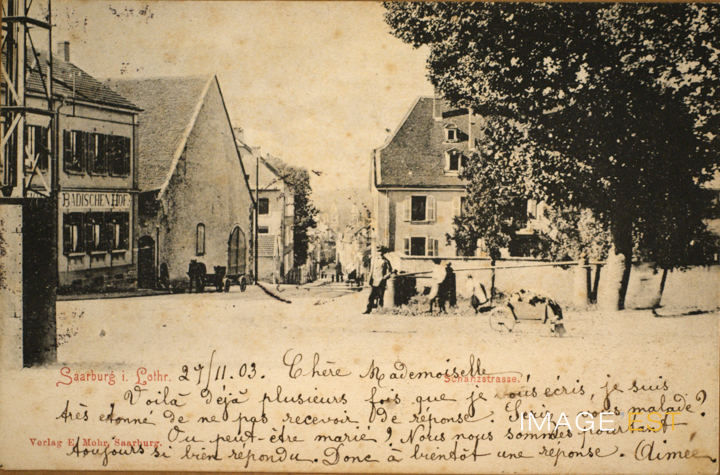 BADISCHEN HOF
Saarburg i. Lothr. 27/11.03. Chère Mademoiselle
Schanzstrasse.
Voilà Déjà plusieurs fois que je vous écris, je suis
très étonné de ne pas recevoir de réponse. malade?
IMAGE EST
Verlag E. Mohr, Saarburg.
Ou peut-être marie? Nous nous sommes pourtant
toujours si bien repondu. Donc à bientôt une réponse. Aimée